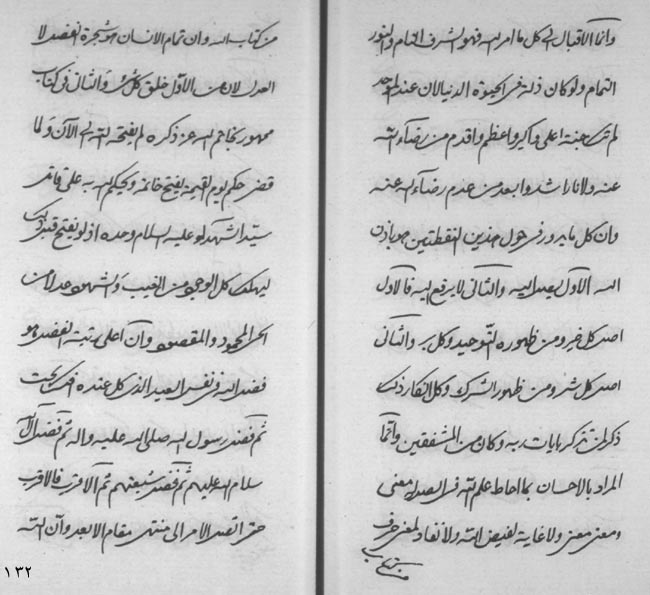 وانما الاقبال الى كل ما امر الله فهو الشرف التام والنور
التمام ولو كان ذلة فى الحيوة الدنيا لان عند الموحد
لم تك جنة اعلى واكبر واعظم واقدم من رضاء الله
عنه ولا نارا اشد وابعد من عدم رضاء الله عنه
وان كل ما يدور فى حول هذين النقطتين هو باذن
الله الاول يصعد اليه والثانى لا يرفع اليه فالاول
اصل كل خير ومن ظهوره التوحيد وكل بر والثانى
اصل كل شر ومن ظهور الشرك وكل انكار ذلك
ذكر لمن تذكر بايات ربه وكان من المشفقين وانما
المراد بالاحسان بما احاط علم الله فى العدل معنى
ومعنى معنى ولا غاية لفيض الله ولا نفاد لمعنى حرف
من كتاب
من كتاب الله وان تمام الانسان هو شجرة الفضل لا
العدل لان من الاول خلق كل شىء والثانى فى كتاب
ممهور بخاتم الله عن ذكره لم يفتحه الله الى الآن ولما
قضى حكم يوم القيمة يفتح خاتمه ويحكم الله به على قاتل
سيد الشهداء عليه السلام وحده اذ لو يفتح قبل ذلك
ليهلك كل الوجود من الغيب والشهود عدلا من
الحى المحمود والمقصود وان اعلى رتبة الفضل هو
فضل الله فى نفس العبد الذى كل عنده افك بحت
ثم فضل رسول الله صلى الله عليه واله ثم فضل الآل
سلام الله عليهم ثم فضل شيعتهم ثم الاقرب فالاقرب
حتى اتصل الامر الى منتهى مقام الابعد وان الله
١٣٢